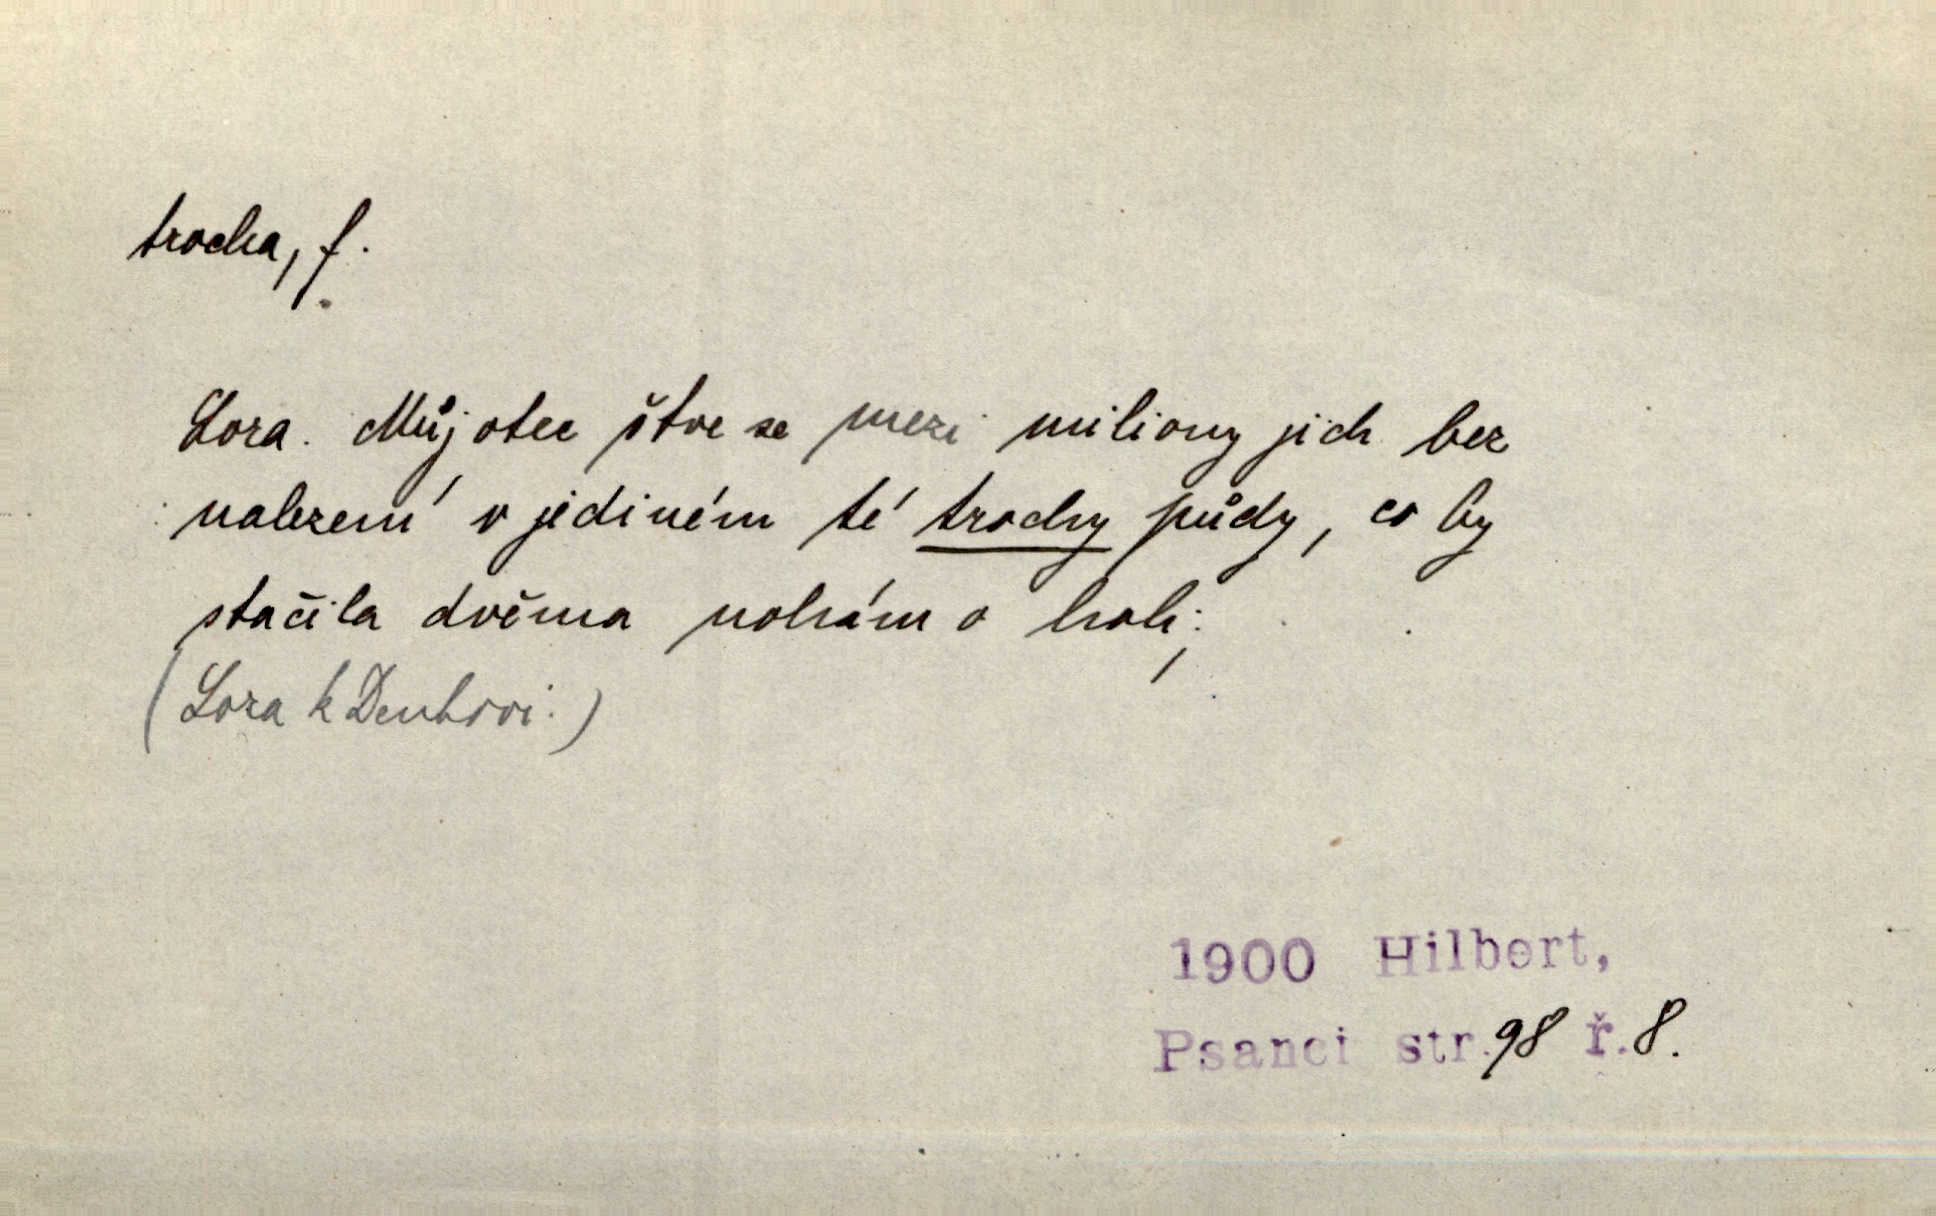 trocha, f.
Lora. Můj otec štve se mezi miliony jich bez
nalezení v jediném té trochy půdy, co by
stačila dvěma nohám o holi;
(Lora k Denkovi.)
1900 Hilbert,
Psanci str. 98 ř. 8.